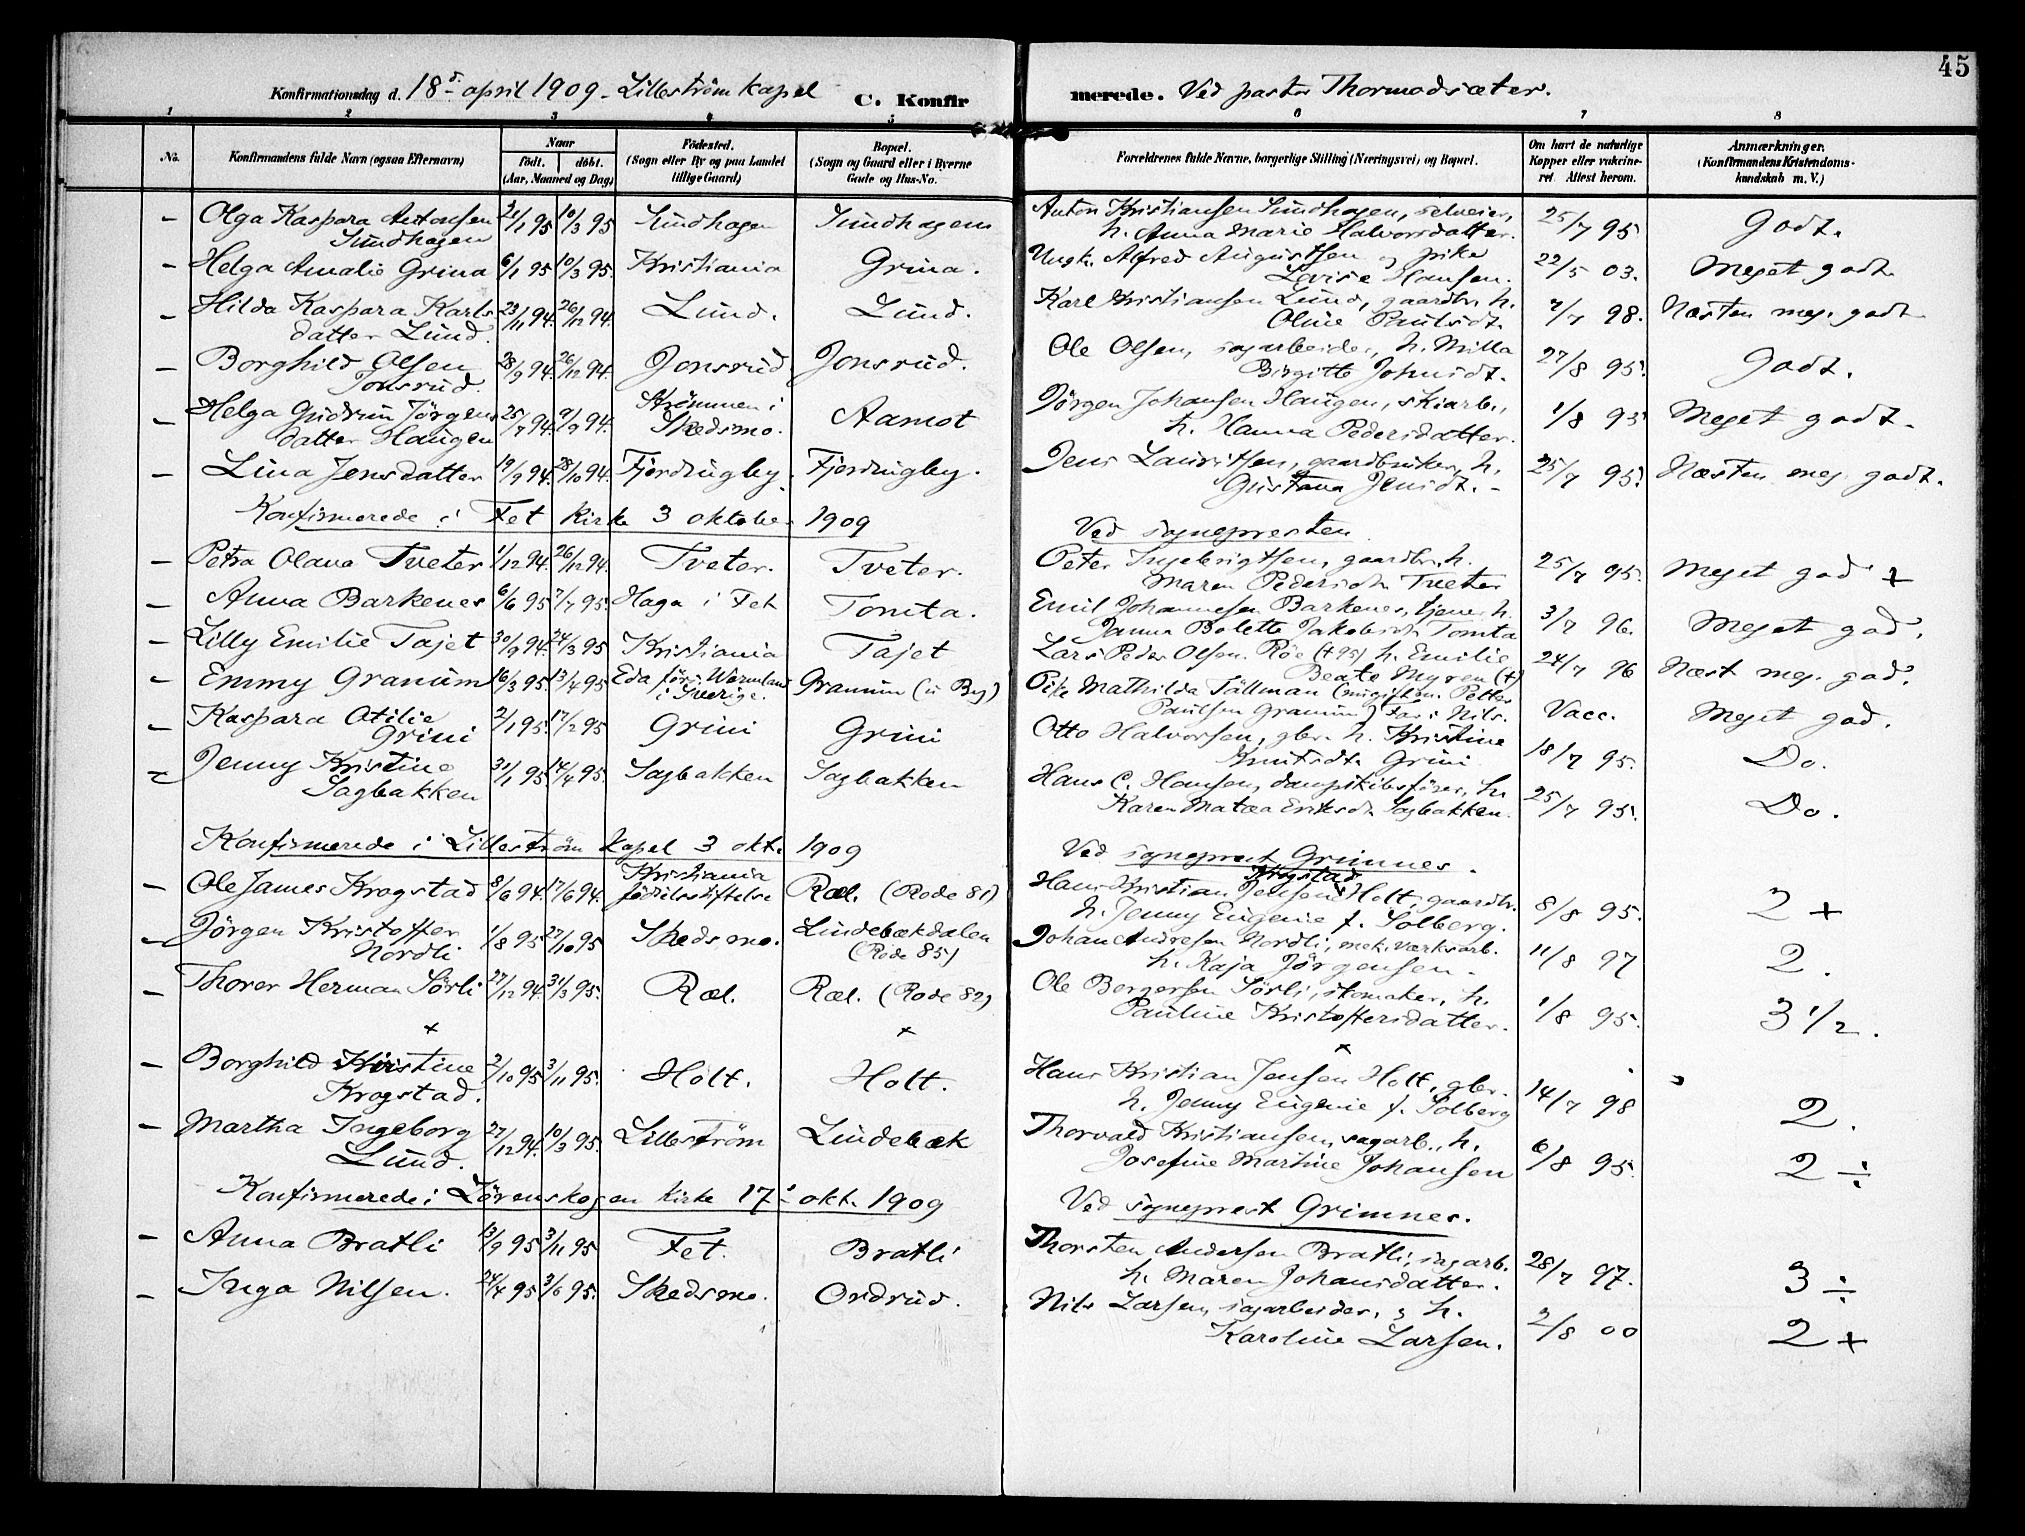 45
Konfirmationsdag d. 18d april 1909 - Lilleström kapel C. Konfirmerede. Ved pastor Thormodsæter.
1 2 3 4 5 6 7 8
No. Konfirmandens fulde Navn (ogsaa Efternavn) Naar födt. döbt. (Aar, Maaned og Dag) Födested. (Sogn eller By og paa Landet tillige Gaard) Bopæl. (Sogn og Gaard eller i Byerne Gade og Hus-No. Forældrenes fulde Navne, borgerlige Stilling (Næringsvei) og Bopæl. Om havt de naturlige Kopper eller vakcineret. Attest herom. Anmærkninger. (Konfirmandens Kristendomskundskab m. V.)
– Olga Kaspara Antonsen 21/1 95 10/3 95 Sundhagen Sundhagen Anton Kristiansen Sundhagen, selveier, 25/7 95 Godt.
Sundhagen h. Anna Marie Halvorsdatter.
– Helga Amalie Grina 6/1 95 10/3 95. Kristiania Grina. Ungk. Alfred Augustsen og pike 22/5 03. Meget godt
Lovise Hansen.
– Hilda Kaspara Karls 23/11 94. 26/12 94. Lund. Lund. Karl Kristiansen Lund, gaardbr. h. 7/7 98. Næsten meg. godt
datter Lund. Oline Paulsdt.
– Borghild Olsen 28/9 94. 26/12 94. Jonsrud Jonsrud. Ole Olsen, sagarbeider, h. Milla 27/8 95. Godt.
Jonsrud. Birgitte Johnsdt.
– Helga Gudrun Jörgens 25/7 94. 9/9 94. Strömmen i Skedsmo. Aamot Jörgen Johansen Haugen, skiarb., 1/8 95 Meget godt.
datter Haugen h. Hanna Pedersdatter.
– Lina Jensdatter 19/9 94. 28/10 94. Fjerdingby. Fjerdingby. Jens Lauritsen, gaardbruker, h. 25/7 95. Næsten meg. godt.
Gustava Jensdt. -
Konfirmerede i Fet kirke 3 oktober 1909 Ved sognepresten
– Petra Olava Tveter 1/12 94. 26/12 94. Tveter. Tveter. Peter Ingebrigtsen, gaardbr. h. 25/7 95. Meget god +
Maren Pedersdt. Tveter
– Anna Barkenes 6/6 95 7/7 95. Haga i Fet Tomta. Emil Johannesen Barkenes, tjener h. 3/7 96. Meget god.
Janna Bolette Jakobsdt. Tomta
– Lilly Emilie Tajet 30/9 94. 24/3 95 Kristiania Tajet Lars Peder Olsen Röe (+95) h. Emilie 24/7 96 Næst meg. god.
Beate Myren (+)
– Emmy Granum 16/3 95. 13/4 95 Eda förs. Wermland i Sverige. Granum (i By) Pike Mathilda Tällman (nugift m. Petter Vacc. Meget god.
Paulsen Granum) Far: Nils.
– Kaspara Otilie 2/1 95. 17/2 95 Grini Grini Otto Halvorsen, gbr. h. Kristine 18/7 95. Do.
Grini Knutsdt. Grini
– Jenny Kristine 31/1 95. 14/4 95. Sagbakken Sagbakken Hans C. Hansen, dampskibsförer, h. 25/7 95. Do.
Sagbakken Karen Matæa Eriksdt. Sagbakken.
Konfirmerede i Lilleström kapel 3 okt. 1909 Ved sogneprest Grimnes.
– Ole James Krogstad 8/6 94. 17/6 94. Kristiania födselsstiftelse Ræl. (Rode 81) Hans Kristian Jensen Krogstad Holt, gaardbr. 8/8 95. 2 +
h. Jenny Eugenie f. Solberg.
– Jörgen Kristoffer 1/8 95 27/10 95 Skedsmo. Lindebækdalen (Rode 85) Johan Andresen Nordli, mek. værksarb. 11/8 97 2.
Nordli h. Kaja Jörgensen.
– Thorer Herman Sörli 27/12 94. 31/3 95. Ræl. Ræl. (Rode 82) Ole Borgersen Sörli, skomaker, h. 1/8 95. 3 1/2.
Pauline Kristoffersdatter.
+ × ×
– Borghild Kristine 2/10 95 3/11 95. Holt. Holt. Hans Kristian Jensen Holt, gbr. 14/7 98 2.
Krogstad. h. Jenny Eugenie f. Solberg
– Martha Ingeborg 27/12 94. 10/3 95. Lilleström Lindebæk Thorvald Kristiansen, sagarb., h. 6/8 95. 2 ÷
Lund. Josefine Martine Johansen
Konfirmerede i Lörenskogen kirke 17d okt. 1909 Ved sogneprest Grimnes.
– Anna Bratli 13/9 95 3/11 95 Fet. Bratli Thorsten Andersen Bratli, sagarb. 28/7 97. 3 ÷
h. Maren Johansdatter.
– Inga Nilsen. 24/4 95 3/6 95. Skedsmo. Ordrud. Nils Larsen, sagarbeider, & h. 2/8 00 2 +
Karoline Larsen.